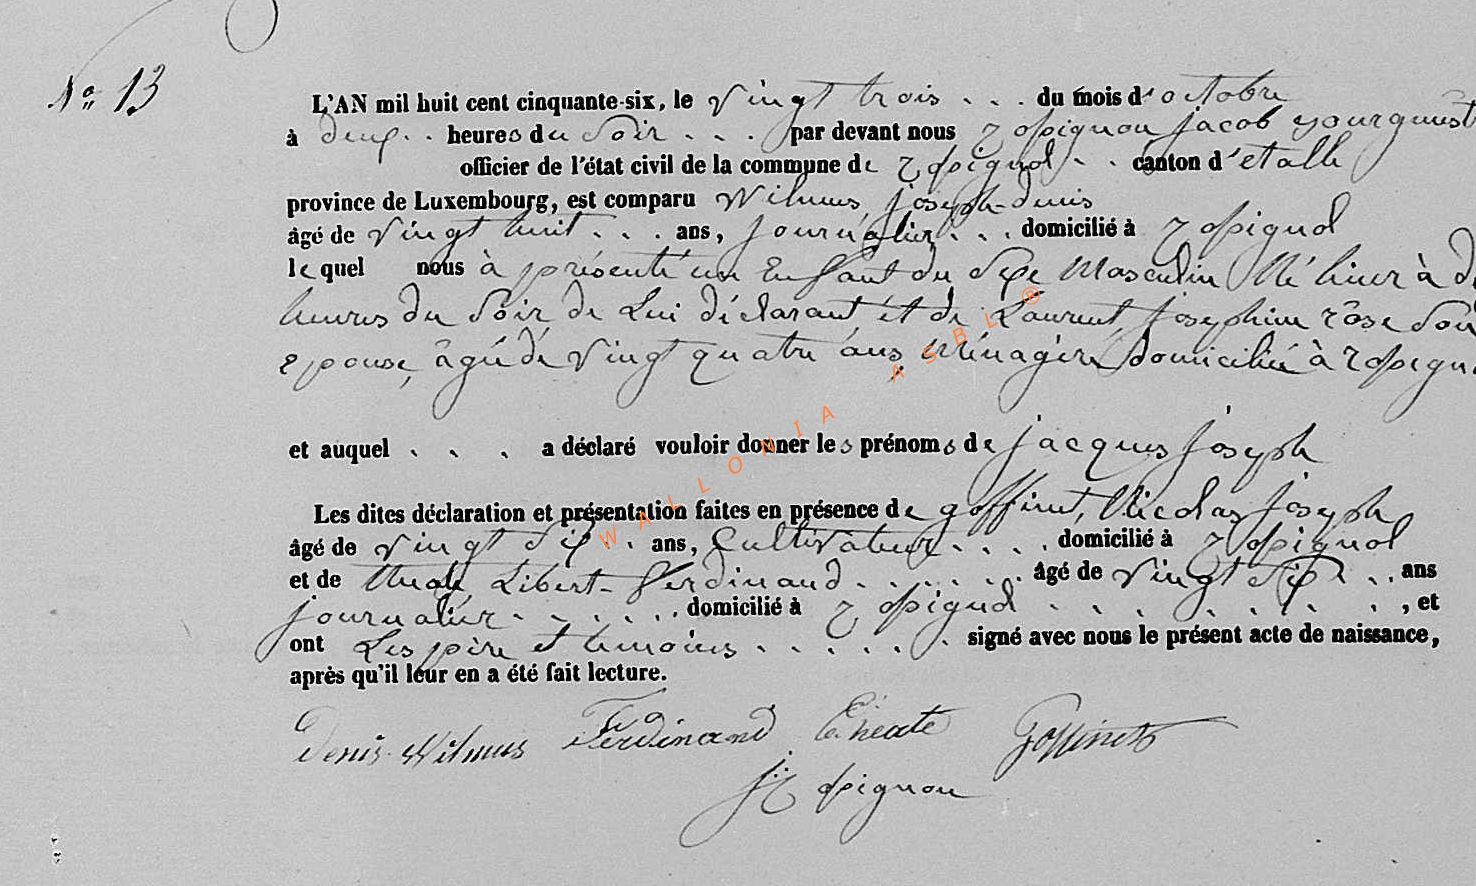 No 13
L'AN mil huit cent cinquante-six, le vingt trois . . . du mois d'octobre
à deux . . heures du Soir . . . par devant nous Rossignon jacob
officier de l'état civil de la commune de Rossignol . . canton d'etalle
province de Luxembourg, est comparu Wilmus joseph-denis
âgé de vingt huit . . . ans, journalier . . . domicilié à Rossignol
lequel nous à présenté un Enfant du Sexe Masculin Né hier à
heures du Soir de Lui déclarant et de Laurent, josephine rose Son
epouse, âgée de vingt quatre ans, Ménagère domiciliée à
et auquel . . . a déclaré vouloir donner les prénoms de jacques joseph
Les dites déclaration et présentation faites en présence de goffinet, Nicolas joseph
âgé de vingt Six . . ans, Cultivateur . . . . domicilié à Rossignol
et de Libert-Ferdinand . . . . . . âgé de vingt Six . . ans
journalier . . . . . . domicilié à Rossignol . . . . . . . , et
ont Les père et temoins . . . . . . signé avec nous le présent acte de naissance,
après qu'il leur en a été fait lecture.
Denis Wilmus Ferdinand Goffinet
Rossignon
WALLONIA ASBL ®